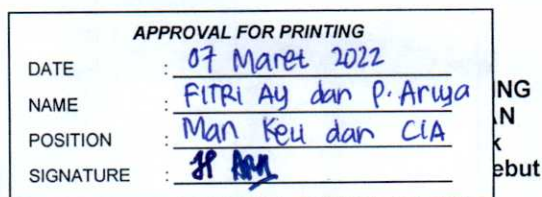 APPROVAL FOR PRINTING
DATE : 07 Maret 2022
NAME : FITRI Ay dan P. Aruya
POSITION : Man Keu dan CIA
SIGNATURE :
NG
AN
K
ebut